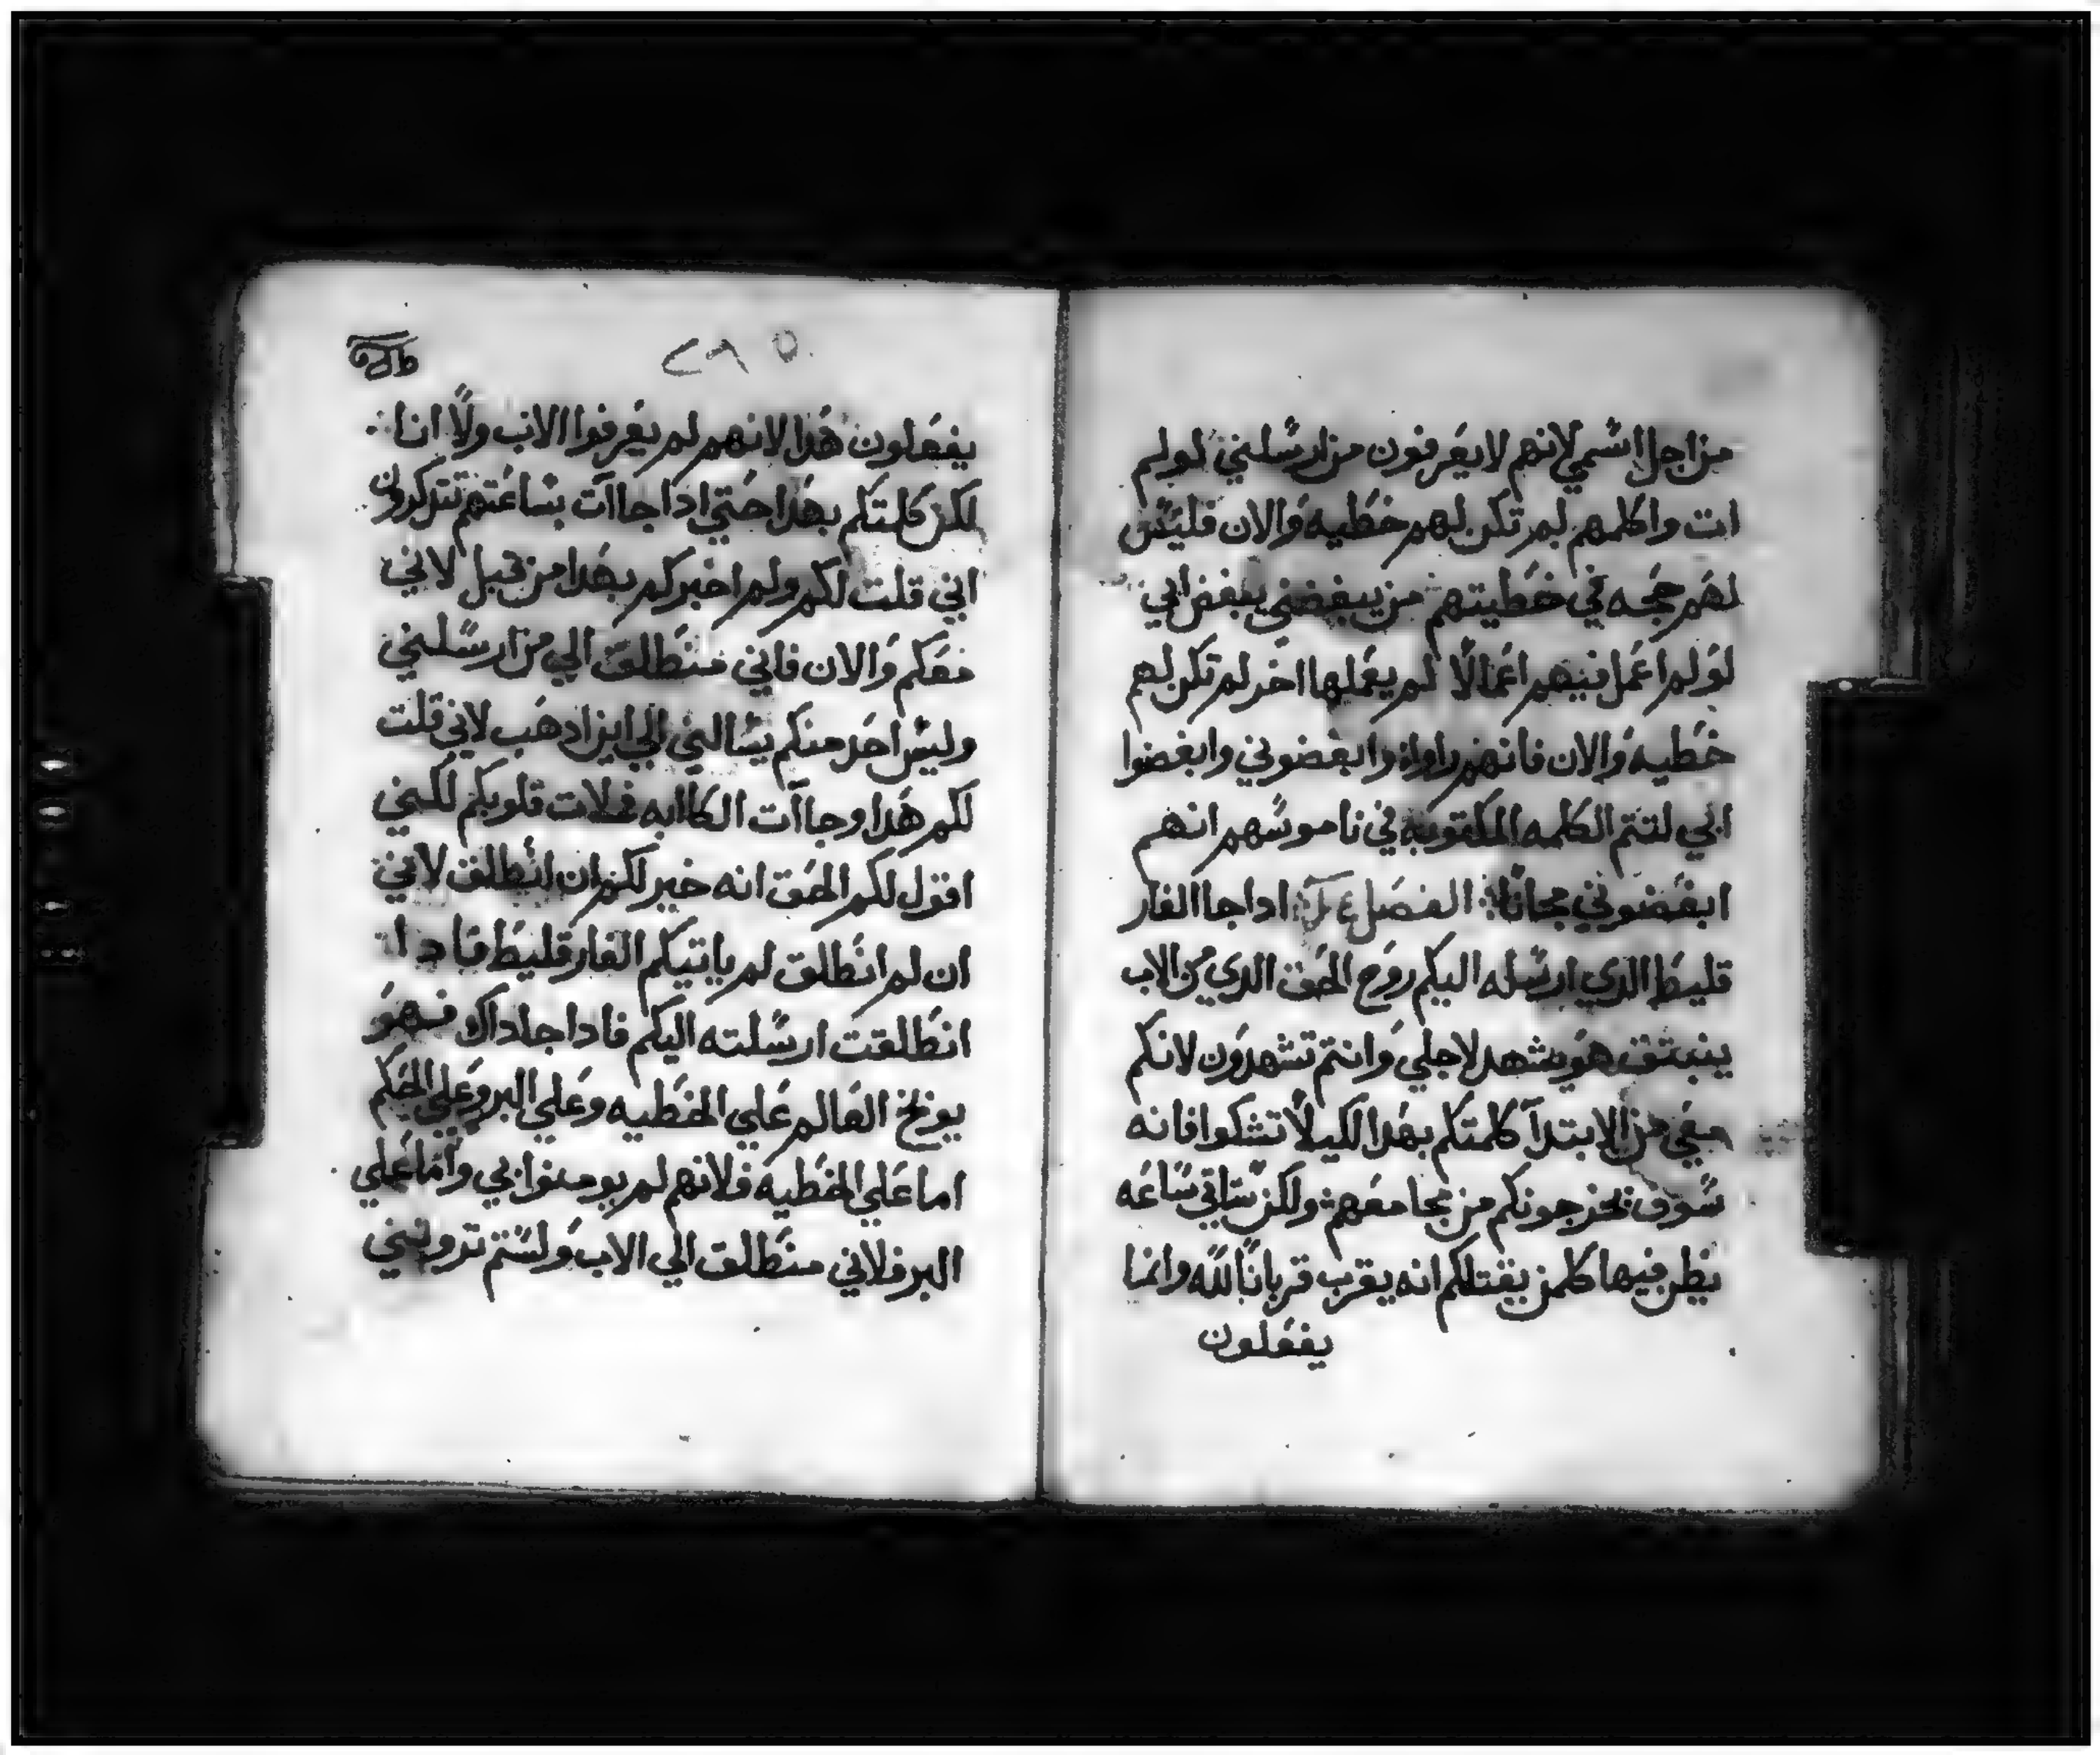 من اجل اسمي لانهم لا يعرفون من ارسلني لو لم
ات واكلمهم لم تكن لهم خطيه والان فليس
لهم حجه في خطيتهم من يبغضني يبغض ابي
لو لم اعمل فيهم اعمالًا لم يعملها اخر لم تكن لهم
خطيه والان فانهم راوا وابغضوني وابغضوا
ابي لتتم الكلمه المكتوبه في ناموسهم انهم
ابغضوني مجانًا الفصل اداجا الفار
قليط الدي ارسله اليكم روح الحق الدي من الاب
ينبثق هو يشهد لاجلي وانتم تشهدون لانكم
معي من الابتدآ كلمتكم بهدا لكيلا تشكوا فانه
سوف يخرجونكم من مجامعهم ولكن ستاتي ساعه
يظن فيها كلمن يقتلكم انه يقرب قربانًا لله وانما
يفعلون
٢٨٥
يفعلون هدا لانهم لم يعرفوا الاب ولا انا
لكن كلمتكم بهدا حتي ادا جاات ساعتهم تتدكرون
اني قلت لكم ولم اخبركم بهدا من قبل لاني
معكم والان فاني منطلق الي من ارسلني
وليس احد منكم يسالني الي اين ادهب لاني قلت
لكم هدا وجاات الكاابه فملات قلوبكم لكني
اقول لكم الحق انه خير لكم ان انطلق لاني
ان لم انطلق لم ياتيكم الفارقليط فادا
انطلقت ارسلته اليكم فادا جا داك فهو
يوبخ العالم علي الخطيه وعلي البر وعلي الحكم
اما علي الخطيه فلانهم لم يومنوا بي واما علي
البر فلاني منطلق الي الاب ولستم تروني